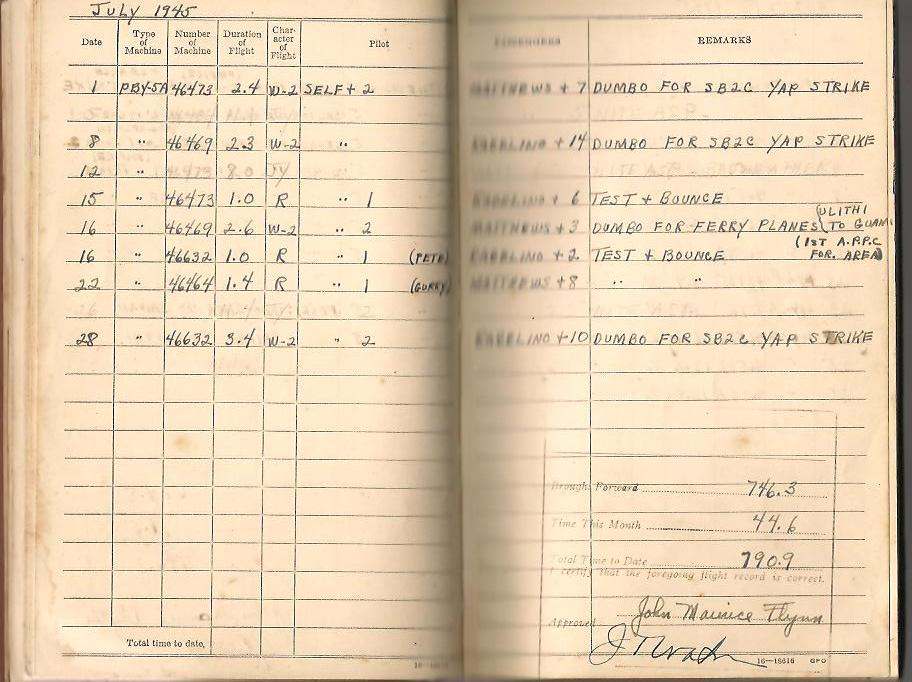 JULY 1945
Date Type of Machine Number of Machine Duration of Flight Character of Flight Pilot PASSENGERS REMARKS
1 PBY-5A 46473 2.4 W-2 SELF + 2 MATTHEWS + 7 DUMBO FOR SB2C YAP STRIKE
8 " 46469 2.3 W-2 " + 14 DUMBO FOR SB2C YAP STRIKE
12 "
15 " 46473 1.0 R " 1 + 6 TEST + BOUNCE
16 " 46469 2.6 W-2 " 2 MATTHEWS + 3 DUMBO FOR FERRY PLANES (ULITHI TO GUAM)
16 " 46632 1.0 R " 1 (PETE) + 2 TEST + BOUNCE (1ST A.P.P.C FOR. AREA)
22 " 46464 1.4 R " 1 MATTHEWS + 8 " "
28 " 46632 3.4 W-2 " 2 + 10 DUMBO FOR SB2C YAP STRIKE
Brought Forward 746.3
Time This Month 44.6
Total Time to Date 790.9
I certify that the foregoing flight record is correct.
John Maurice Flynn
Approved
Total time to date,
16—18616 GPO